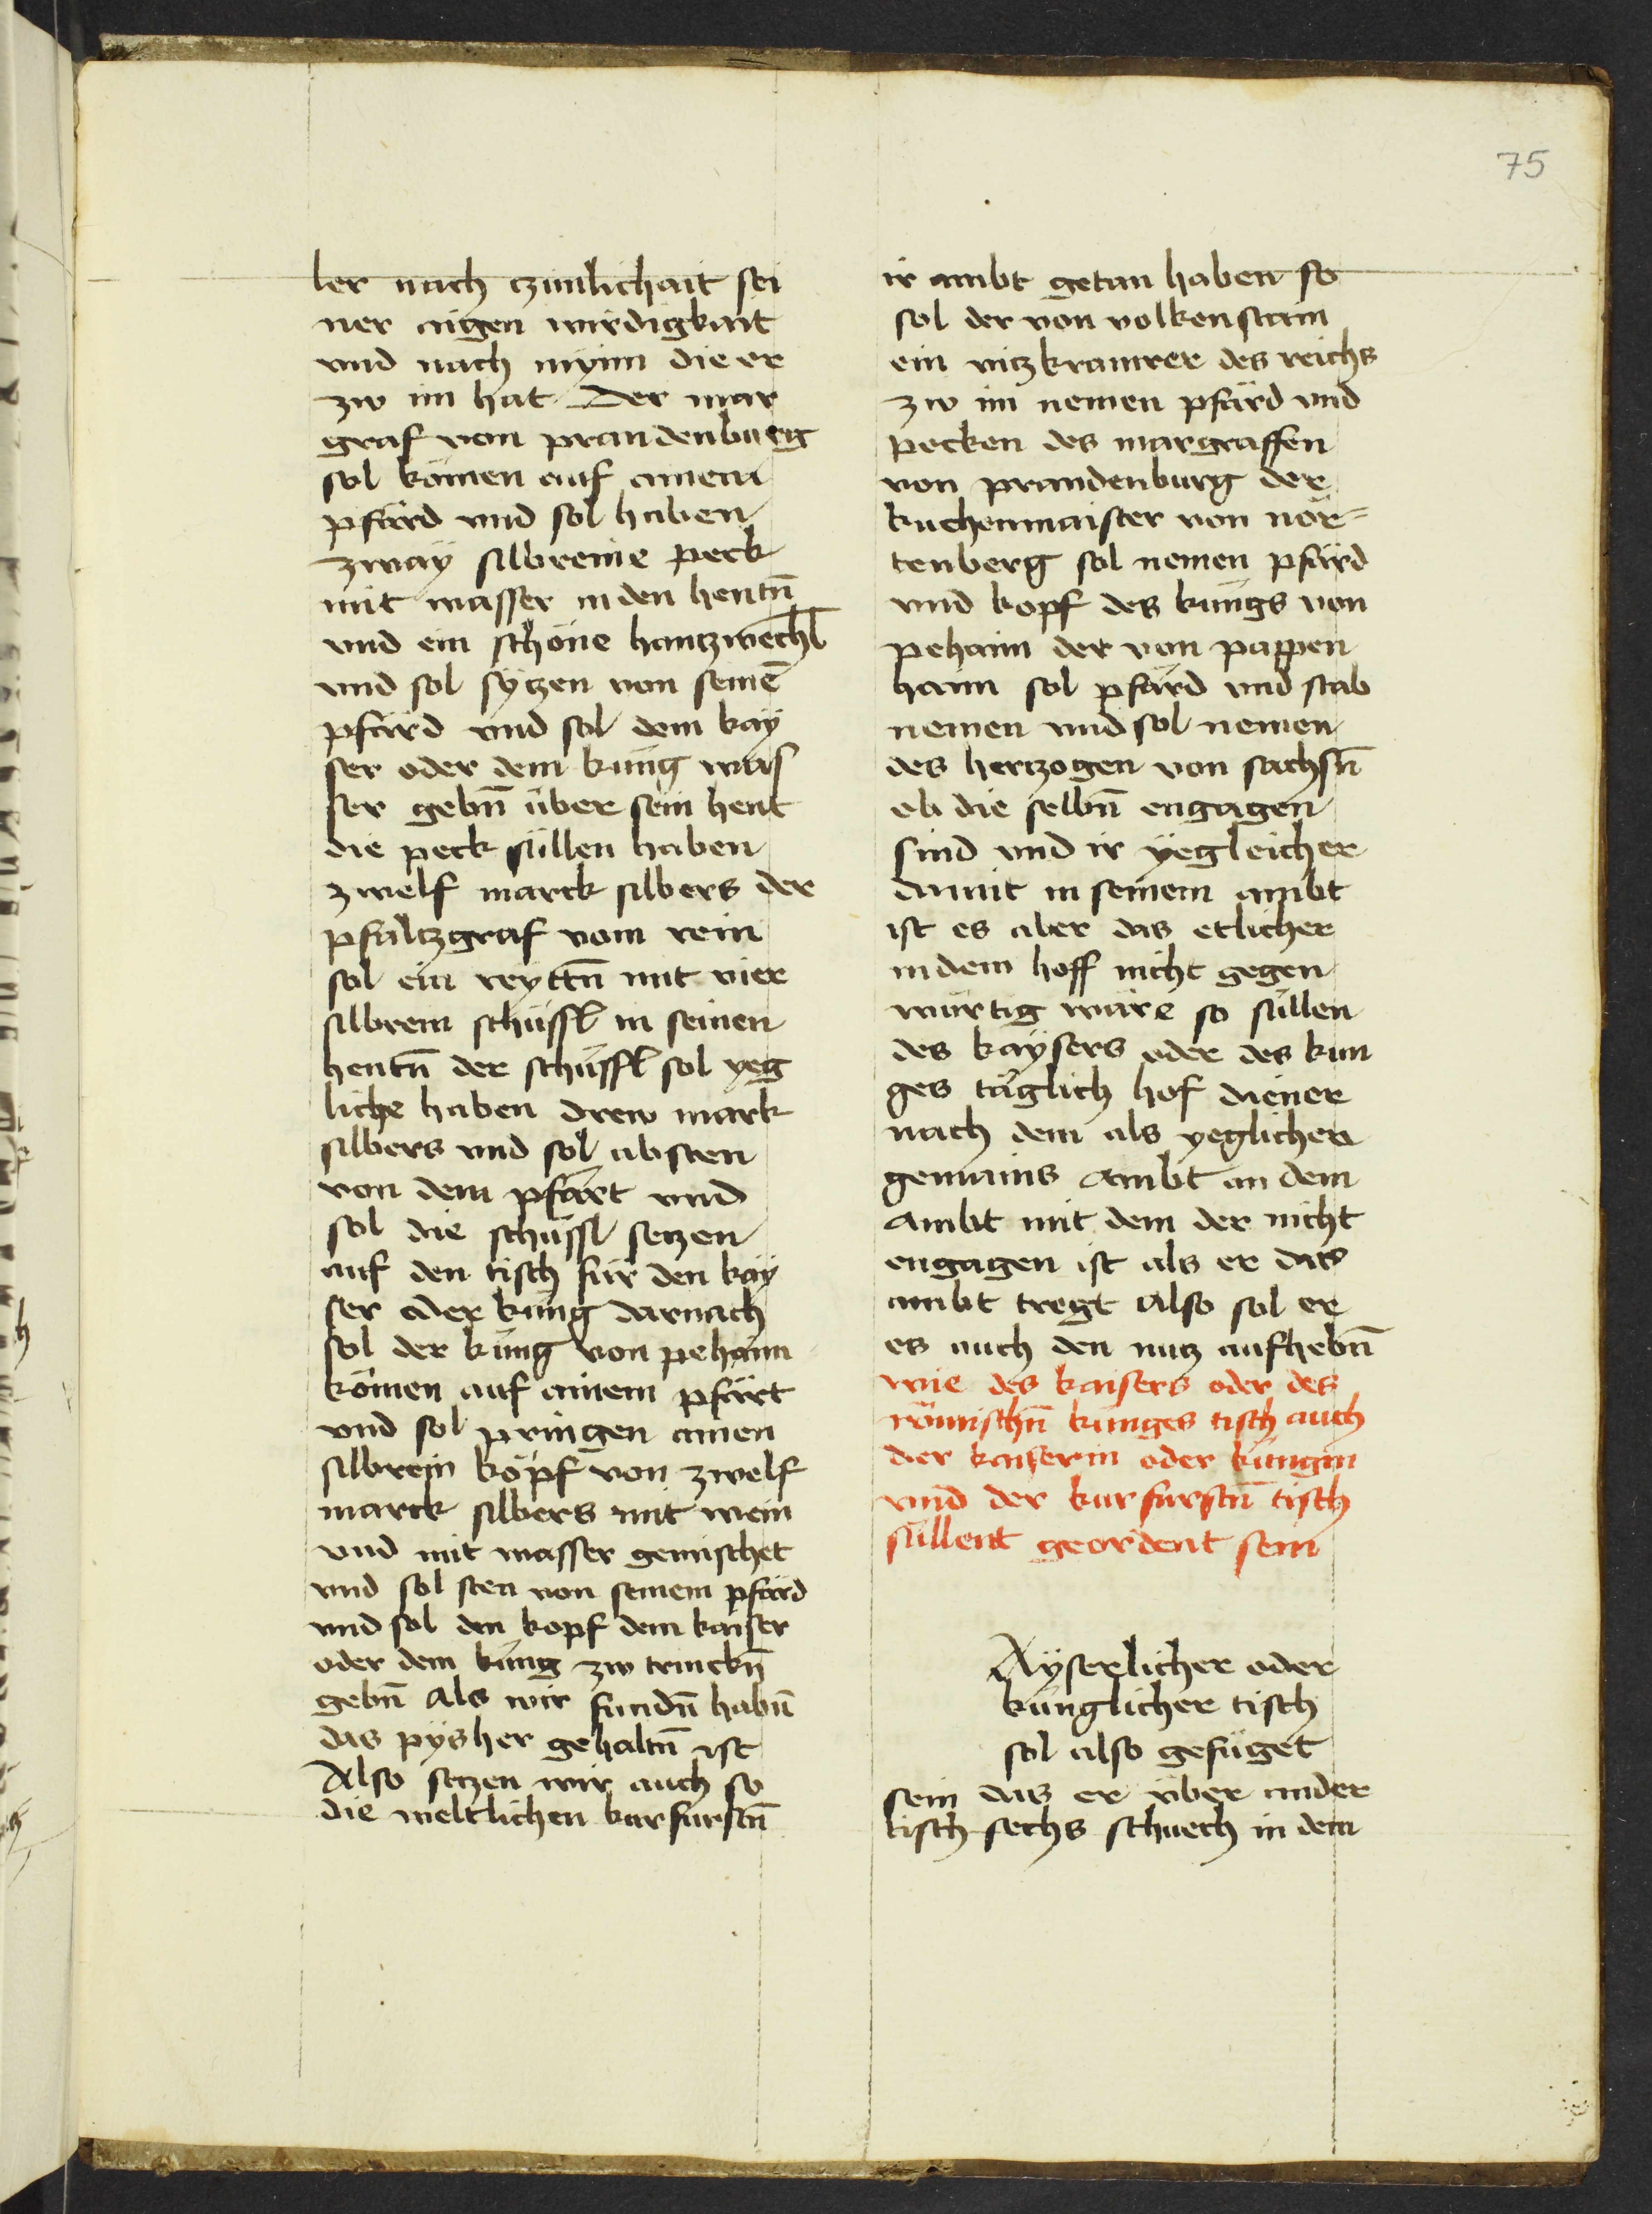 75
ler nach czimlichait sei
ner aigen wirdigkait
vnd nach mynn die er
zw im hat Der mar
graf von prandenburg
sol kömen auf ainem
pfärd vnd sol haben
zwaÿ silbreine peck
mit wasser in den hentn̄
vnd ein schöne hantzwechl
vnd sol sÿtzen von seinē
pfärd vnd sol dem kaÿ
ser oder dem küng was
ser gebn̄ über sein hent
die peck süllen haben
zwelf marck silbers der
pfaltzgraf vom rein
sol ein reyttn̄ mit vier
silbrem schüssl in seinen
hentn̄ der schüssl sol yeg
liche haben drew mark
silbers vnd sol absten
von dem pfärt vnd
sol die schüssl setzen
auf den tisch für den kaÿ
ser oder küng darnach
sol der küng von pehaim
kömen auf ainem pfärt
vnd sol pringen ainen
silbrein köpf von zwelf
marck silbers mit wein
vnd mit wasser gemischet
vnd sol sten von seinem pfärd
vnd sol den kopf dem kaiser
oder dem küng zw trinckn̄
gebn̄ Als wir fundn̄ habn̄
das pÿsher gehaltn̄ ist
Also setzen wir auch so
die weltlichen kurfurstn̄
ir ambt getan haben so
sol der von volkenstain
ein vitzkramrer des reichs
zw im nemen pfärd vnd
pecken des margraffen
von prandenburg der
kuchenmaister von nör=
tenberg sol nemen pfärd
vnd kopf des küngs von
pehaim der von pappen
haim sol pfärd vnd stab
nemen vnd sol nemen
des hertzogen von sachsn̄
ob die selbn̄ engagen
sind vnd ir yegleicher
damit in seinem ambt
ist es aber das etlicher
in dem hoff nicht gegen
würtig wäre so süllen
des kaÿsers oder des kun
ges täglich hof diener
nach dem als yeglicher
gemains Ambt an dem
Ambt mit dem der nicht
engagen ist als er das
ambt tregt Also sol er
es auch den nutz aufhebn̄
wie des kaisers oder des
römischn̄ kunges tisch auch
der kaiserin oder küngin
vnd der kurfurstn̄ tisch
süllent geordent sein
Aÿserlicher oder
künglicher tisch
sol also gefüget
sein das er über ander
tisch sechs schuech in dem